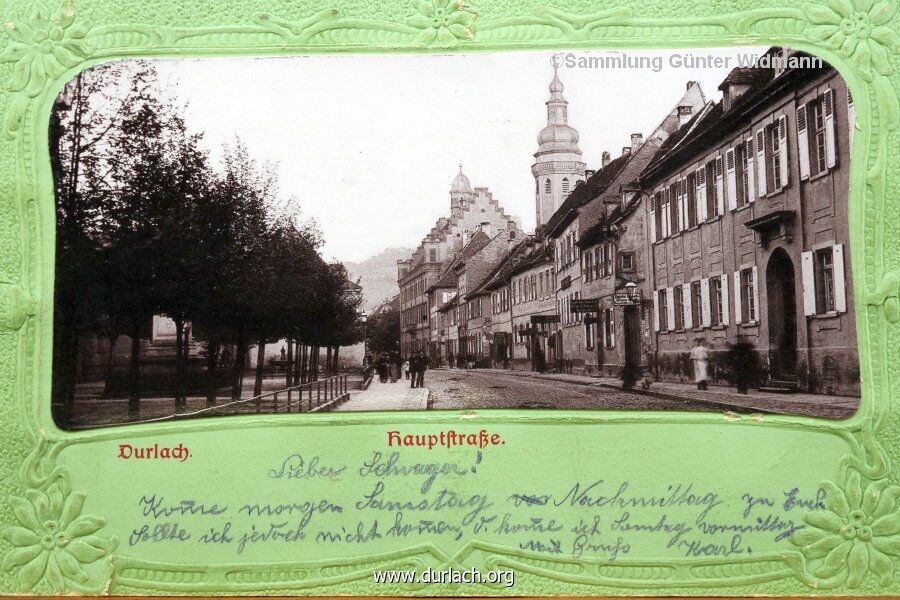 ©Sammlung Günter Widmann
Durlach.
Hauptstraße.
Lieber Schwager!
Kom̅e morgen Samstag Nachmittag zu Euch
Sollte ich jedoch nicht kom̅en, kom̅e ich Sonntag vormittag
Mit Gruß Karl.
www.durlach.org